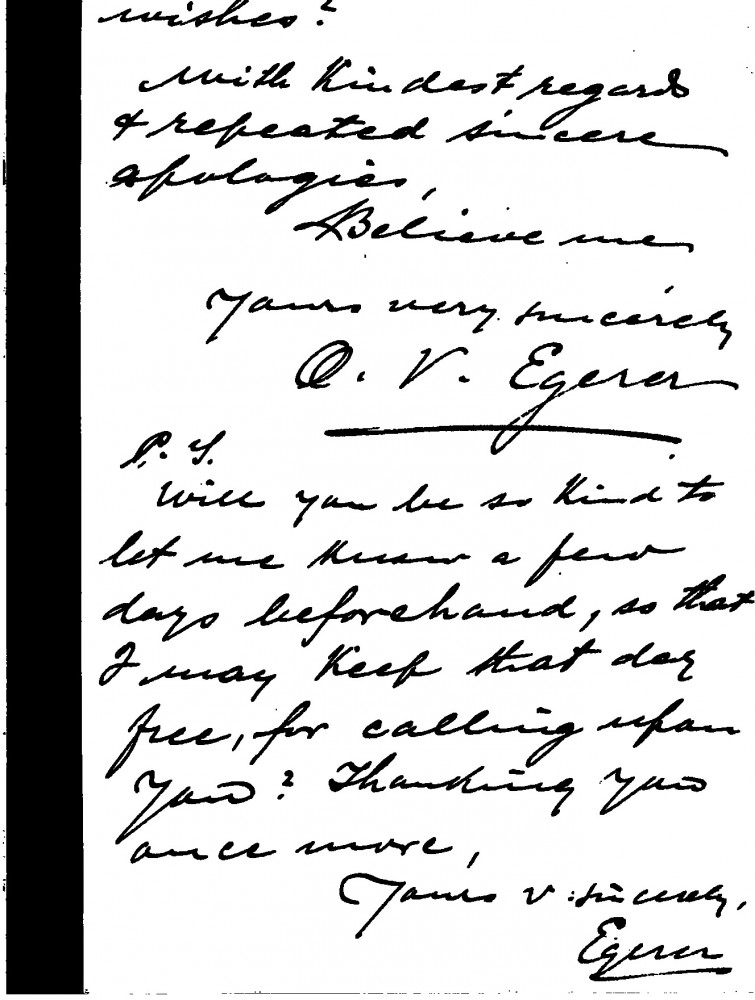 wishes?
With Kindest regards
& repeated sincere
apologies,
Believe me
Yours very sincerely
O. V. Egerer
P. S.
Will you be so Kind to
let me Know a few
days beforehand, so that
I may Keep that day
free, for calling upon
You? Thanking you
once more,
Yours v. sincerely,
Egerer